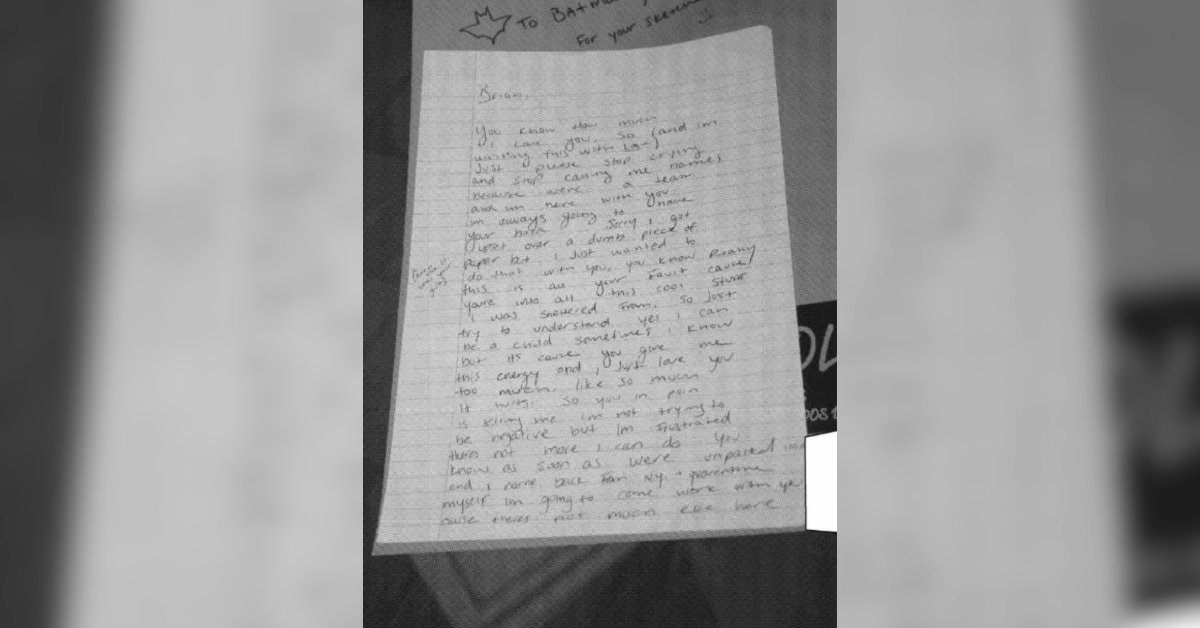 To BAtm
For your sketch
Brian,
You know How much
I Love you. So (and im
writing this with Love)
Just please stop crying
and stop calling me names
because were a team
and im here with you
im always going to have
your back. Sorry i got
upset over a dumb piece of
paper but i Just wanted to
do that with you, you know Really
this is all your Fault cause/
youre into all this cool stuff
i was sheltered From. So Just
try to understand yes i can
be a child sometimes i know
but its cause you give me
this energy and i Just love you
too much. like so much
it hurts. So you in pain
is killing me im not trying to
be negative but Im frustrated
theres not more i can do you
know as soon as were unpacked
and i come back from N.Y. + quarentine
myself im going to come work with ya
cause theres not much else here
OL
POST